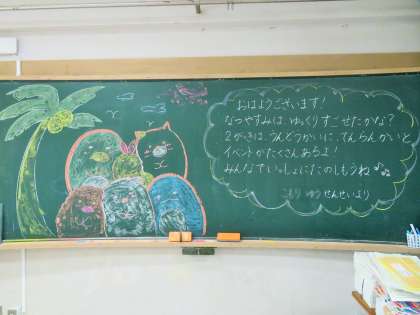 おはようございます!
なつやすみは、ゆっくりすごせたかな?
2がっきは、うんどうかいに、てんらんかいと
イベントがたくさんあるよ!
みんなでいっしょにたのしもうね♪
こもり ゆう せんせいより